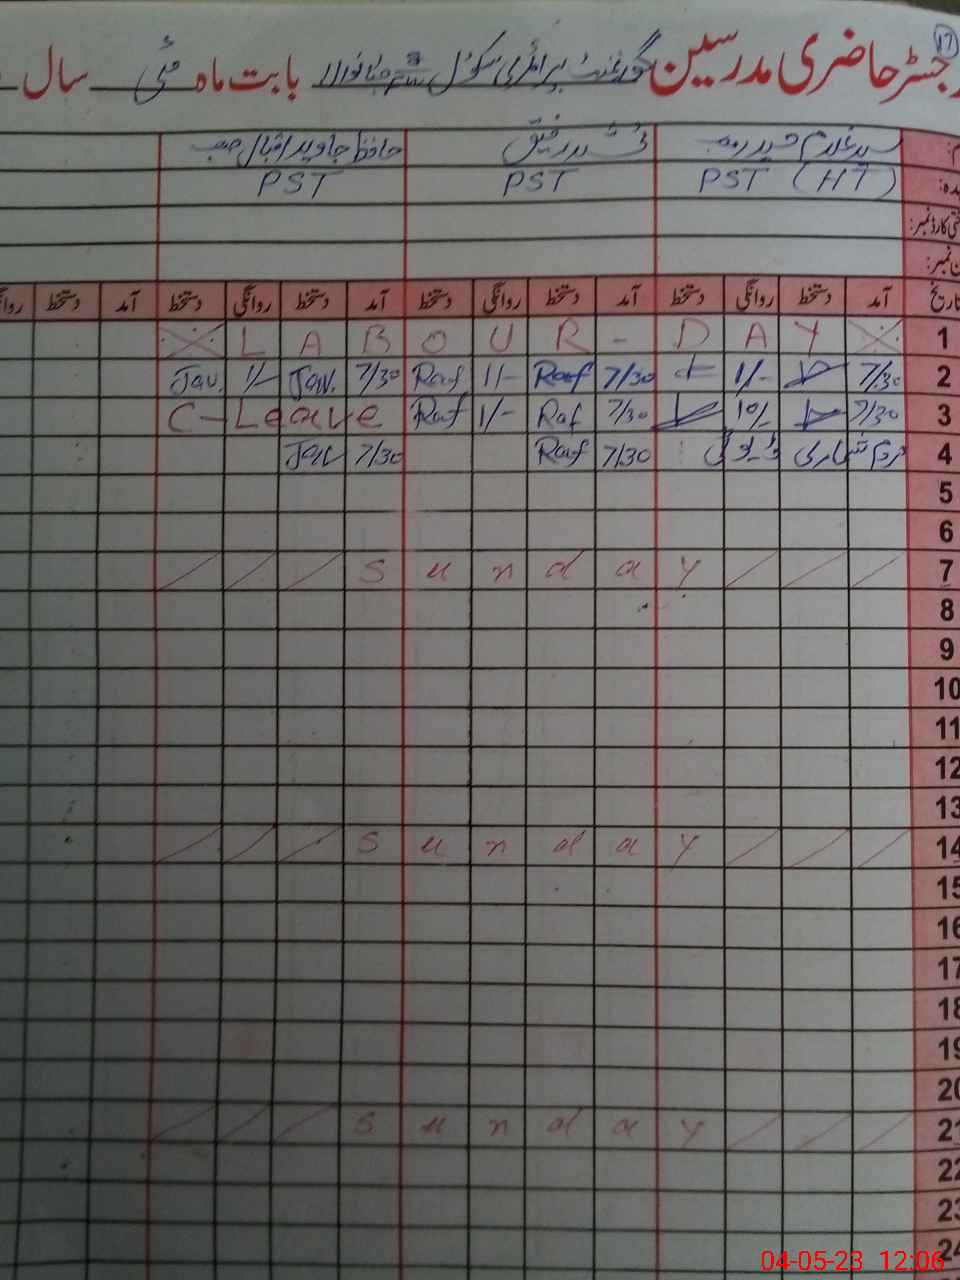 ۱۷
رجسٹر حاضری مدرسین گورنمنٹ پرائمری سکول بابت ماہ مئی سال
سید غلام حیدر رفیق حافظ جاوید اقبال صاحب
PST (HT) PST PST
تاریخ آمد دستخط روانگی دستخط آمد دستخط روانگی دستخط آمد دستخط روانگی دستخط آمد دستخط
1 L A B O U R - D A Y
2 7/30 1/- 7/30 Raf 1/- Raf 7/30 Jav. 1/- Jav.
3 7/30 10/- 7/30 Raf 1/- Raf C-Leave
4 مردم شماری ڈیوٹی 7/30 Raf 7/30 Jav
5
6
7 S u n d a y
8
9
10
11
12
13
14 S u n d a y
15
16
17
18
19
20
21 S u n d a y
22
23
24
04-05-23 12:06